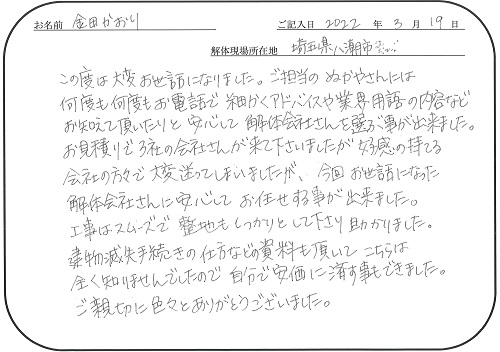 お名前 金田かおり ご記入日 2022 年 3 月 19 日
解体現場所在地 埼玉県八潮市
この度は大変お世話になりました。ご担当のぬかやさんには
何度も何度もお電話で細かくアドバイスや業界用語の内容など
お知えて頂いたりと安心して解体会社さんを選ぶ事が出来ました。
お見積りで3社の会社さんが来て下さいましたが好感の持てる
会社の方々で大変迷ってしまいましたが、今回お世話になった
解体会社さんに安心してお任せする事が出来ました。
工事はスムーズで整地もしっかりとして下さり助かりました。
建物滅失手続きの仕方などの資料も頂いてこちらは
全く知りませんでしたので自分で安価に済す事もできました。
ご親切に色々とありがとうございました。